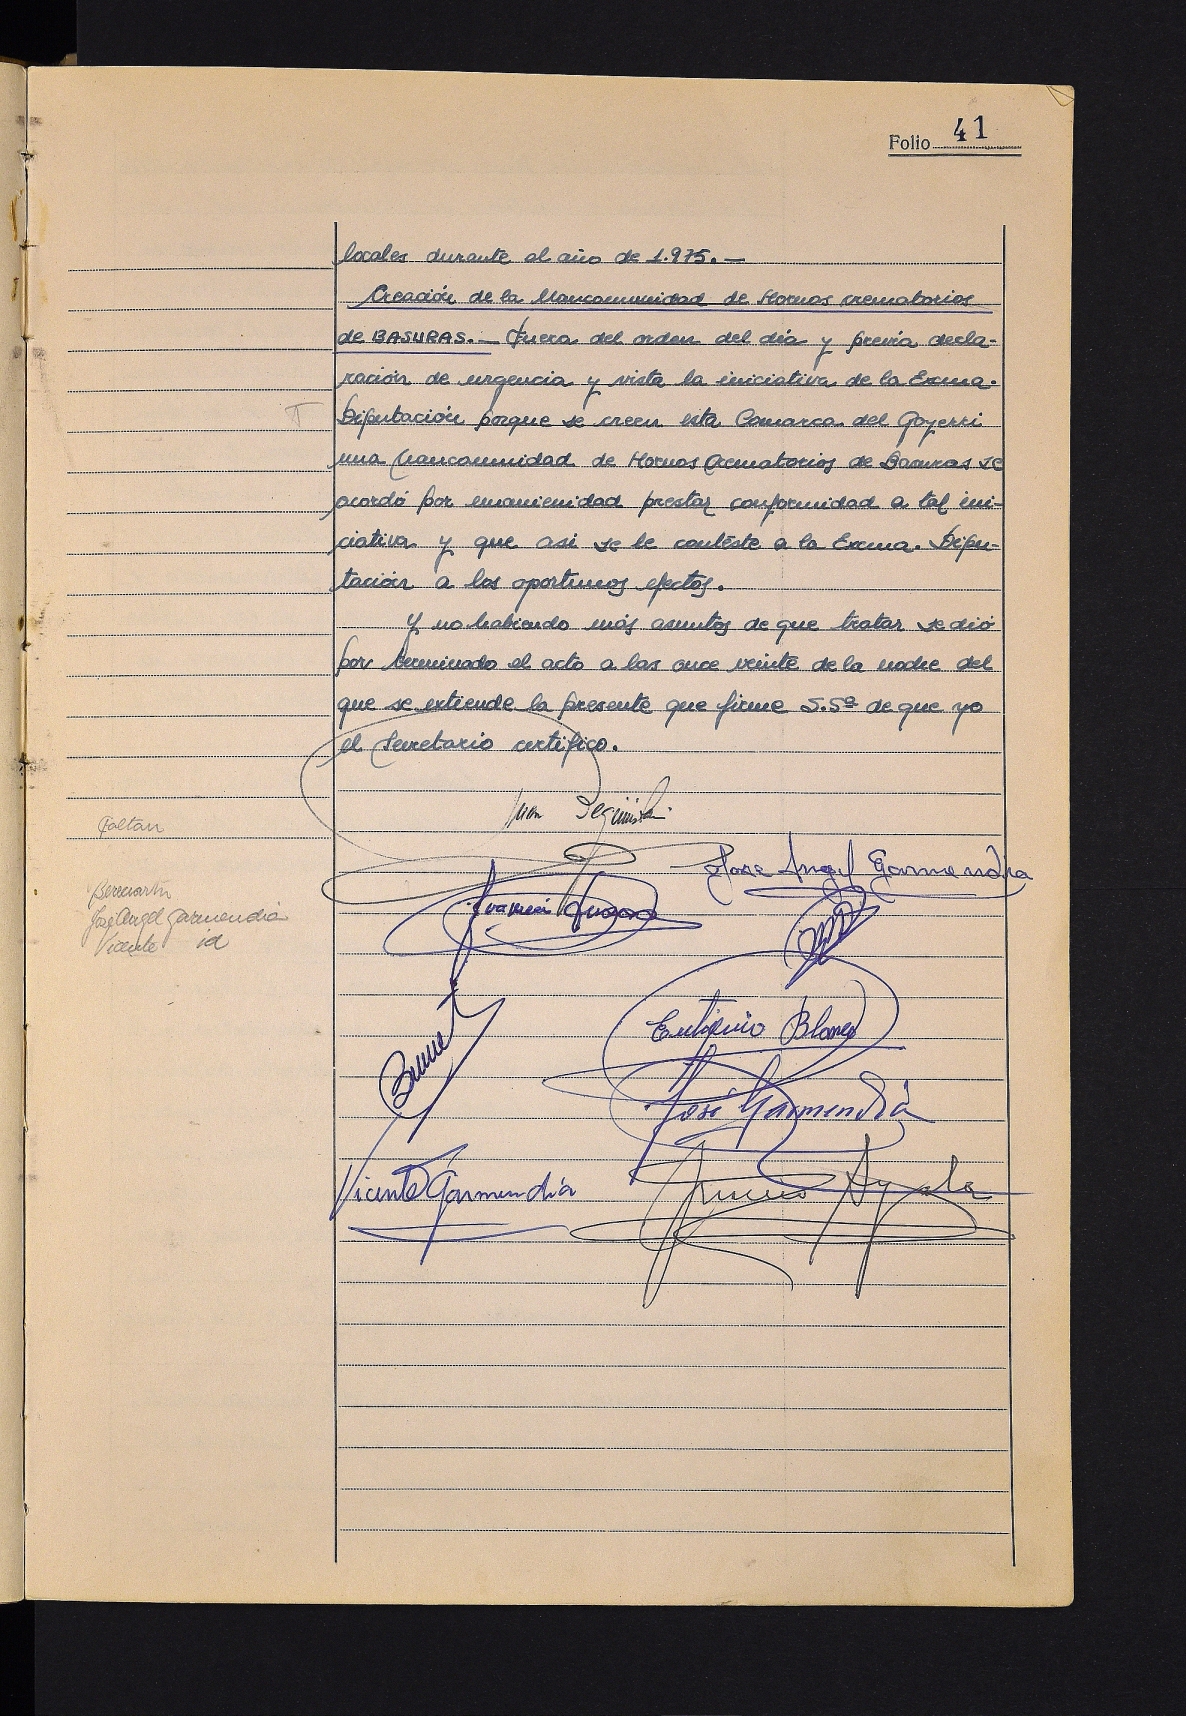 Folio 41
locales durante el año de 1.975.—
Creación de la Mancomunidad de Hornos crematorios
de BASURAS.— Fuera del orden del día y previa decla-
ración de urgencia y vista la iniciativa de la Excma.
Diputación porque se creen esta Comarca del Goyerri
una Mancomunidad de Hornos Crematorios de Basuras se
acordó por unanimidad prestar conformidad a tal ini-
ciativa y que asi se le contéste a la Excma. Dipu-
tación a los oportunos efectos.
Y no habiendo más asuntos de que tratar se dió
por terminado el acto a las once veinte de la noche del
que se extiende la presente que firme S.Sª de que yo
el Secretario certifico.
Juan
Faltan
Jose Angel Garmendia
José Angel Garmendia
Vicente id
Eutiquio Blanco
José Garmendia
Vicente Garmendia
Ayala